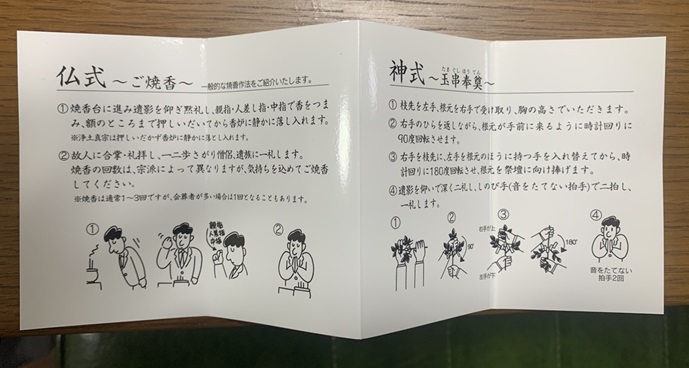 仏式 ～ご焼香～ 一般的な焼香作法をご紹介いたします。
①焼香台に進み遺影を仰ぎ黙礼し、親指・人差し指・中指で香をつま
み、額のところまで押しいだいてから香炉に静かに落し入れます。
※浄土真宗は押しいだかず香炉に静かに落とし入れます。
②故人に合掌・礼拝し、一二歩さがり僧侶、遺族に一礼します。
焼香の回数は、宗派によって異なりますが、気持ちを込めてご焼香
してください。
※焼香は通常1～3回ですが、会葬者が多い場合は1回となることもあります。
①
親指
人差指
中指
②
神式 ～玉串奉奠～
たまぐしほうてん
①枝先を左手、根元を右手で受け取り、胸の高さでいただきます。
②右手のひらを返しながら、根元が手前に来るように時計回りに
90度回転させます。
③右手を枝先に、左手を根元のほうに持つ手を入れ替えてから、時
計回りに180度回転させ、根元を祭壇に向け捧げます。
④遺影を仰いで深く二礼し、しのび手(音をたてない拍手)で二拍し、
一礼します。
①
②
90°
③
右手が上
左手が下
180°
④
音をたてない
拍手2回